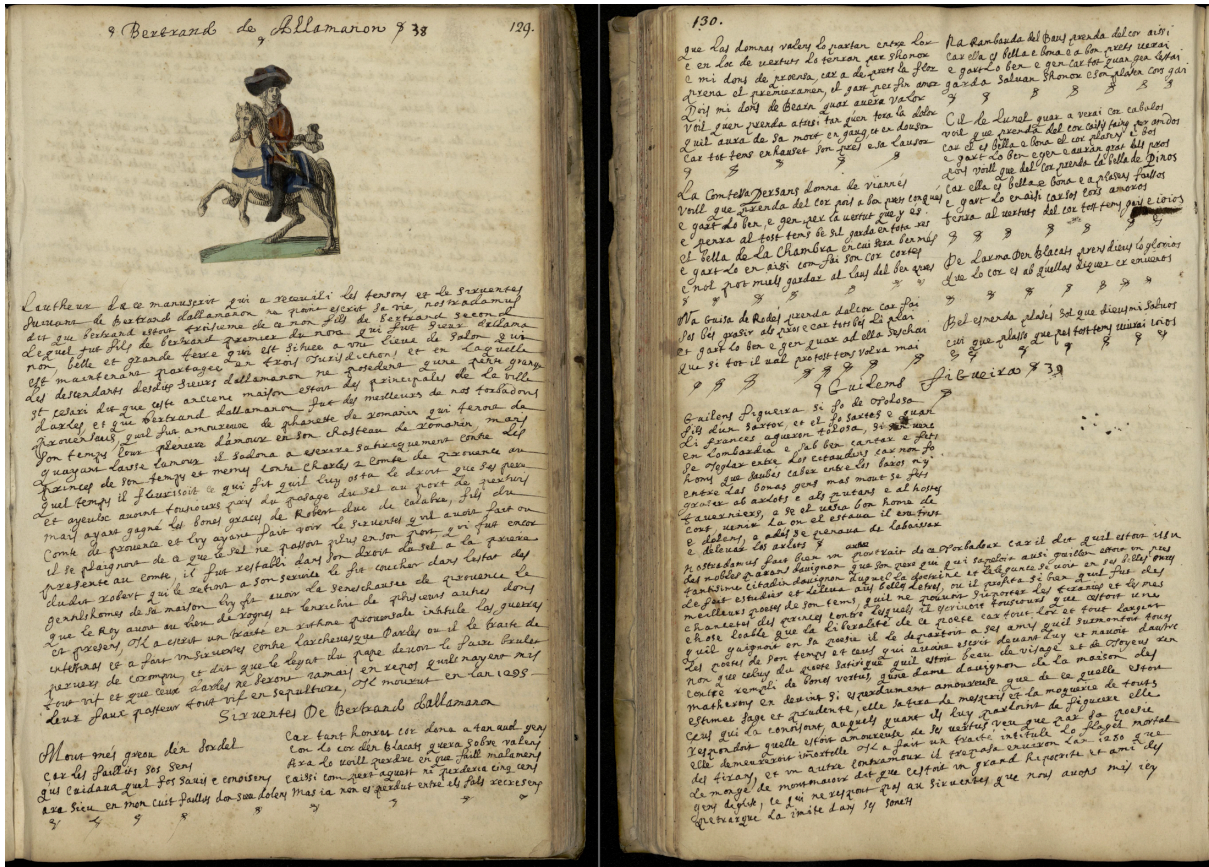 Bertrand de Allamanon 38
129.
Lautheur de ce manuscrit qui a recueilli les tensons et le sirventes
suivant de Bertrand dallamanon ne point escrit sa vie, nostradamus
dit que bertrand estoit troisieme de ce non fils de bertrand second
lequel fut fils de bertrand premier du nom, qui fut sieur dallama
non, belle et grande terre qui est sihuee a vne lieue de Salon qui
est maintenant partagee en trois Jurisdictions et en laquelle
les descendants desdits sieurs dallamanon ne posedent qune petite
et cesari dit que ceste anciene maison estoit des principales de la ville
darles, et que bertrand dallamanon fut des meilleurs de nos torbadors
prouensaus, quil fut amoureuse de phanete de romanin qui tenoit de
son temps cour pleniere damour en son chasteau de romanin, mais
quayant laisse lamour il sadona a escrire satiriquement contre les
princes de son temps et memes contre Charles 2 Comte de prouence au
quel temps il fleurisoit ce qui fit quil luy osta le droit que ses pere
et ayeulx avoint tousiours pris du pasage du sel au port de pertuis
mais ayant gagné les bones graces de Robert duc de calabre, fils du
Comte de prouence et luy ayant fait voir le sirventes qvil avoit fait ou
il se plaignoit de ce que le sel ne passoit plus en son port, qui fut encor
presente au comte, il fut restabli dans son droit du sel a la priere
dudit robert qui le retint a son service le fit coucher dans lestat des
gentilshomes de sa maison luy fit avoir la seneschausee de prouence le
que le Roy avoit au lieu de rognes et lenrichit de plusieurs autres dons
et presens, Il a escrit un traite en rithme prouensale intitule las guerras
intestinas et a fait vn sirventes contre larchevesque darles ou il le traite de
pervers de corompu, et dit que le legat du pape devoit le faire bruler
tout vif et que ceux darles ne seront iamais en repos quils nayent mis
leur faux pasteur tout vif en sepulture, Il mourut en lan 1295
Sirventes De Bertrand dallamanon
Mout mes greou den Sordel
car les faillits sos sens
qui cuidava quel fos savis e conoisens
ara sieu en mon cuit faillos don sui dolens
Car tant honrat cor dona a tan aud gens
Con lo cor den Blacats quera sobre valens
Ara lo voill perdre en que faill malamens
Caissi com pert aquest ni perderia cinq cens
Mas ia non es perdut entre els fals recresens
130.
que las domnas valens lo partan entre lor
e en loc de vertuts lo tenran per shonor
e mi dons de proensa, car a de prets la flor
prena el premieramen, el gart per fin amor
Pois mi dons de Bearn quar avera valor
voil quen prenda atresi tan quen tora la dolor
quil aura de sa mort en gaug et en dousor
Car tot tems enhauset son pres e sa lausor
La Comtessa Dersans domna de viannés
voill que prenda del cor pois a bon prets conqués
e gart lo ben, e gen per la vertut que y es
e penra al tost tems be sil garda en tota res
el bella de la Chambra en cui sera ben mes
e gart lo en aissi com fai son cor cortes
e nol pot muls gardar al laus del ben apres
Na Guisa de Rodes prenda dal cor car fai
sos bés grasir als pros e car tots bés li plai
et gart lo ben e gen quar ad ella seschai
que si tot il val protost tens volra mai
Na Rambauda del Baus prenda del cor aissi
car ella es bella e bona e a bon prets verai
e gart lo ben e gen car tot quan gen lestai
garda salvan shonor e son plasen cors gai
Cil de lunel quar a verai cor cabalos
voil que prenda del cor caissi taing per amdos
car el es bella e bona el cor plasens e bos
e gart lo ben e gen e auran grat dels pros
pois voill que del cor prenda la bella de Pinos
car ella es bella e bona e a plasens faissos
e gart lo en aisi car sos cors amoros
tenra al vertuts del cor tost tems gais e ioios
De larma Den Blacats prens dieus lo glorios
que lo cor es ab quellas diquer er envenos
Bel esmenda plases sol que dieus mi salvos
cui que plasso que pes tost tems viurai ioios
Guilems Figueira 39
Guilens figueira si fo de Tolosa
fils dun sartor, et el fo sartes e quan
li frances agueron tolosa, si venc
en lombardia e sab ben cantar e fets
se Joglar entre los citaudins car non fo
homs que saubes caber entre los baros ny
entre las bonas gens mas mout se fets
grasir ab arlots e als putans e al hostes
taverniers, e se el vesia bon homa de
cort, venir la on el estava il era trist
e dolens, e adés se penava de labaissar
e delevar los arlots
nostradamus fait bien un autre portrait de ce Torbadour car il dit quil estoit issu
des nobles parans davignon que son pere qui sapeloit aussi guillen estoit un pres
tantisime citadin davignon duquel la doctrine et lelegance se voit en ses filles outre
le fait estudier et leleva aux belles letres, ou il profita si bien quil fut des
meilleurs poetes de son tems, quil ne pouvoit suporter les tiranies et les mes
chancetes des princes contre lesquels il escrivoit tousiours que estoit une
chose loable que la liberalité de ce poete car tout lor et tout largent
quil gaignoit en sa poesie il le departoit a ses amis quil surmontoit tous
les poetes de son temps et ceus qui avoint escrit devant luy et navoit dautre
non que celuy du poete satirique quil estoit beau de visage et de Joyeux ren
contre rempli de bones vertus, qune dame davignon de la maison des
matherons en devint si esperdument amoureuse que de ce quelle estoit
estimee sage et prudente, elle servit de mespris et la moquerie de touts
ceus qui la conoisoint, auquels quant ils luy parloint de figueire elle
respondoit quelle estoit amoureuse de ses vertus veu que par sa poesie
elle demeureroit imortelle Il a fait un traite intitule lo flagel mortal
des tirans, et un autre contramour il trepasa environ lan 1280 que
le monge de montmaior dit que cestoit un grand hipocrite et ami des
gens deglise, ce qui ne respont pas au sirventes que nous avons mis icy
petrarque la imite dans ses sonets